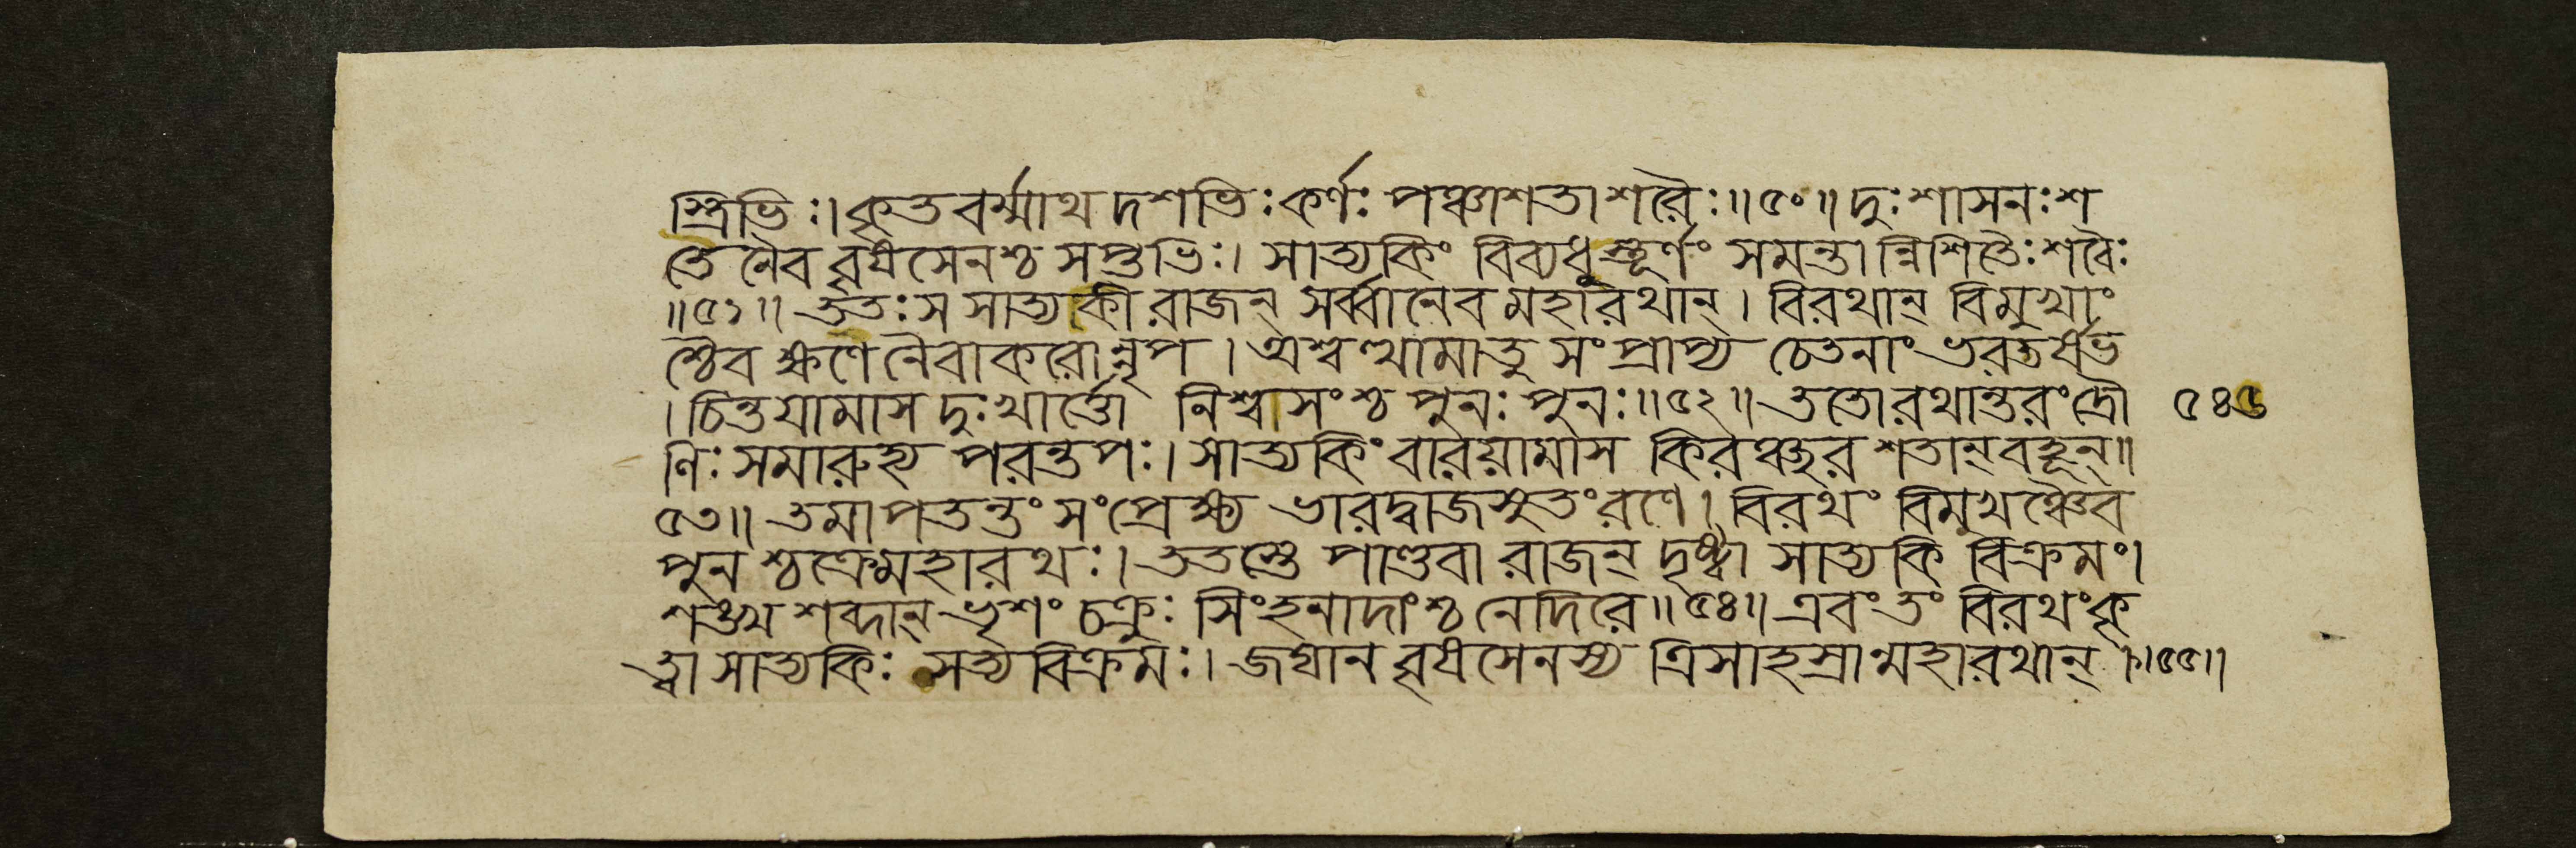 স্ত্রিভিঃ। কৃতবর্ম্মাথ দশভিঃ কর্ণঃ পঞ্চাশতা শরৈঃ॥৫০॥ দুঃশাসনঃ শ
তেনৈব বৃষসেনশ্চ সপ্তভিঃ। সাত্যকিং বিব্যধুস্তূর্ণং সমন্তান্নিশিতৈঃ শরৈঃ
॥৫১॥ ততঃ স সাত্যকী রাজন্ সর্ব্বানেব মহারথান্। বিরথান্ বিমুখাং
শ্চৈব ক্ষণেনৈবাকরোন্নৃপ। অশ্বত্থামা তু সংপ্রাপ্য চেতনাং ভরতর্ষভ
। চিন্তয়ামাস দুঃখার্ত্তো নিশ্বাসংশ্চ পুনঃ পুনঃ॥৫২॥ ততো রথান্তরং দ্রৌ ৫৪৬
ণিঃ সমারুহ্য পরন্তপঃ। সাত্যকিং বারয়ামাস কিরঞ্ছর শতান্ বহূন্॥
৫৩॥ তমাপতন্তং সংপ্রেক্ষ্য ভারদ্বাজসুতং রণে। বিরথং বিমুখঞ্চৈব
পুনশ্চক্রে মহারথঃ। ততস্তে পাণ্ডবা রাজন্ দৃষ্ট্বা সাত্যকি বিক্রমং।
শঙ্খ শব্দান্ ভৃশং চক্রুঃ সিংহনাদাংশ্চ নেদিরে॥৫৪॥ এবং তং বিরথং কৃ
ত্বা সাত্যকিঃ সত্য বিক্রমঃ। জঘান বৃষসেনস্য ত্রিসাহস্রান্মহারথান্।॥৫৫॥